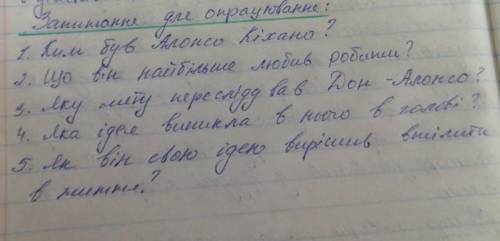 Запитання для опрацювання:
1. Ким був Алонсо Кіхано?
2. Що він найбільше любив робити?
3. Яку мету переслідував Дон-Алонсо?
4. Яка ідея виникла в нього в голові?
5. Як він свою ідею вирішив втілити
в життя?